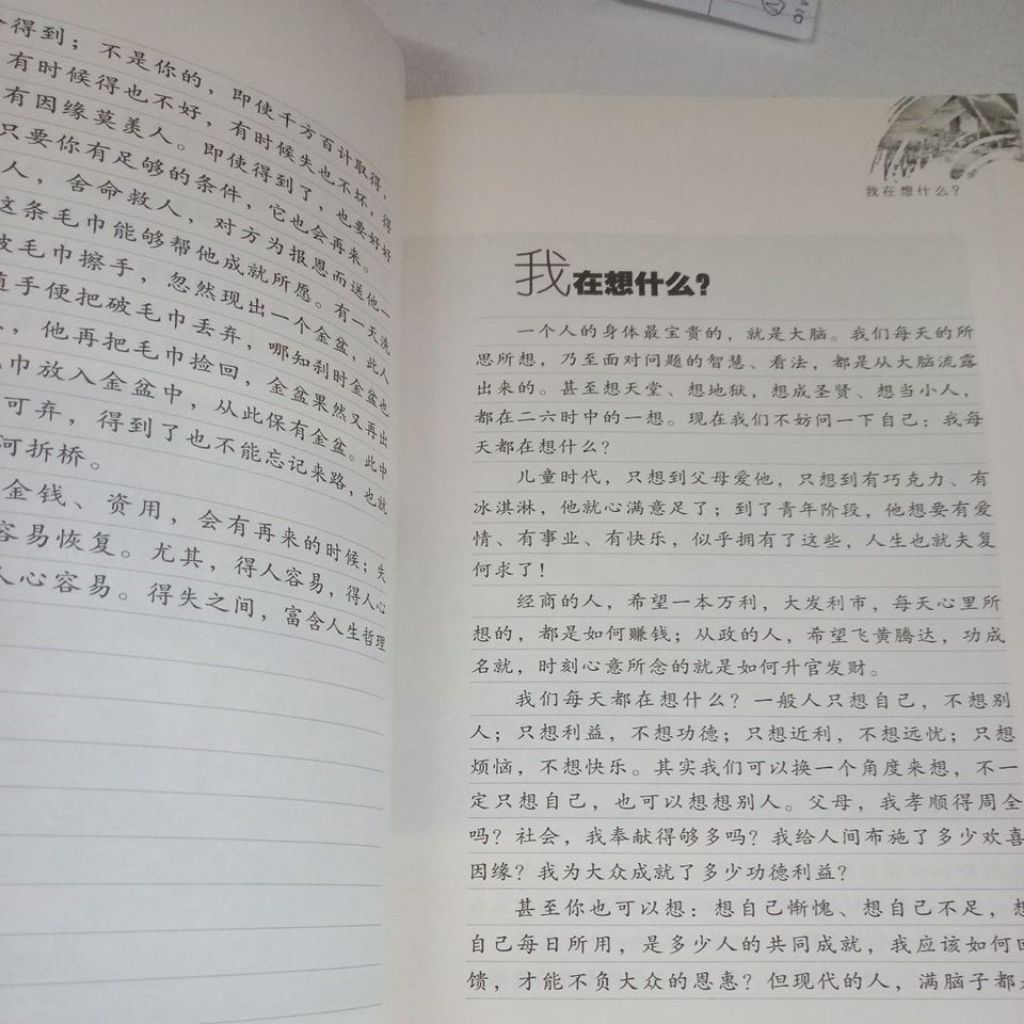 得到；不是你的，即使千方百计取得，
有时候得也不好，有时候失也不坏，得
有因缘莫羡人。即使得到了，也要好好
只要你有足够的条件，它也会再来。
人，舍命救人，对方为报恩而送他一
这条毛巾能够帮他成就所愿。有一天洗
破毛巾擦手，忽然现出一个金盆，此人
随手便把破毛巾丢弃，哪知刹时金盆也
，他再把毛巾捡回，金盆果然又再出
巾放入金盆中，从此保有金盆。此中
可弃，得到了也不能忘记来路，也就
河拆桥。
金钱、资用，会有再来的时候；失
容易恢复。尤其，得人容易，得人心
人心容易。得失之间，富含人生哲理
我在想什么？
我在想什么？
一个人的身体最宝贵的，就是大脑。我们每天的所
思所想，乃至面对问题的智慧、看法，都是从大脑流露
出来的。甚至想天堂、想地狱，想成圣贤、想当小人，
都在二六时中的一想。现在我们不妨问一下自己：我每
天都在想什么？
儿童时代，只想到父母爱他，只想到有巧克力、有
冰淇淋，他就心满意足了；到了青年阶段，他想要有爱
情、有事业、有快乐，似乎拥有了这些，人生也就夫复
何求了！
经商的人，希望一本万利，大发利市，每天心里所
想的，都是如何赚钱；从政的人，希望飞黄腾达，功成
名就，时刻心意所念的就是如何升官发财。
我们每天都在想什么？一般人只想自己，不想别
人；只想利益，不想功德；只想近利，不想远忧；只想
烦恼，不想快乐。其实我们可以换一个角度来想，不一
定只想自己，也可以想想别人。父母，我孝顺得周全
吗？社会，我奉献得够多吗？我给人间布施了多少欢喜
因缘？我为大众成就了多少功德利益？
甚至你也可以想：想自己惭愧、想自己不足，想
自己每日所用，是多少人的共同成就，我应该如何回
馈，才能不负大众的恩惠？但现代的人，满脑子都是